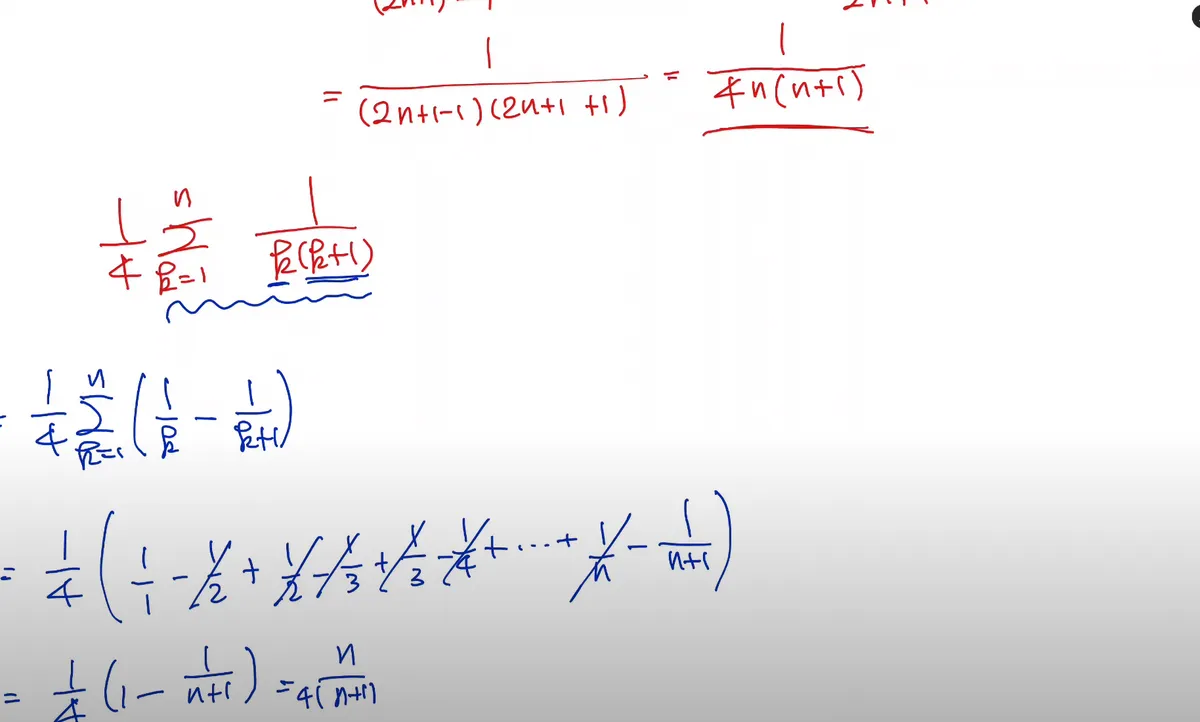 = 1/((2n+1-1)(2n+1+1)) = 1/(4n(n+1))
1/4 Σ_{k=1}^{n} 1/(k(k+1))
= 1/4 Σ_{k=1}^{n} (1/k - 1/(k+1))
= 1/4 (1/1 - 1/2 + 1/2 - 1/3 + 1/3 - 1/4 + ... + 1/n - 1/(n+1))
= 1/4 (1 - 1/(n+1)) = n/(4(n+1))